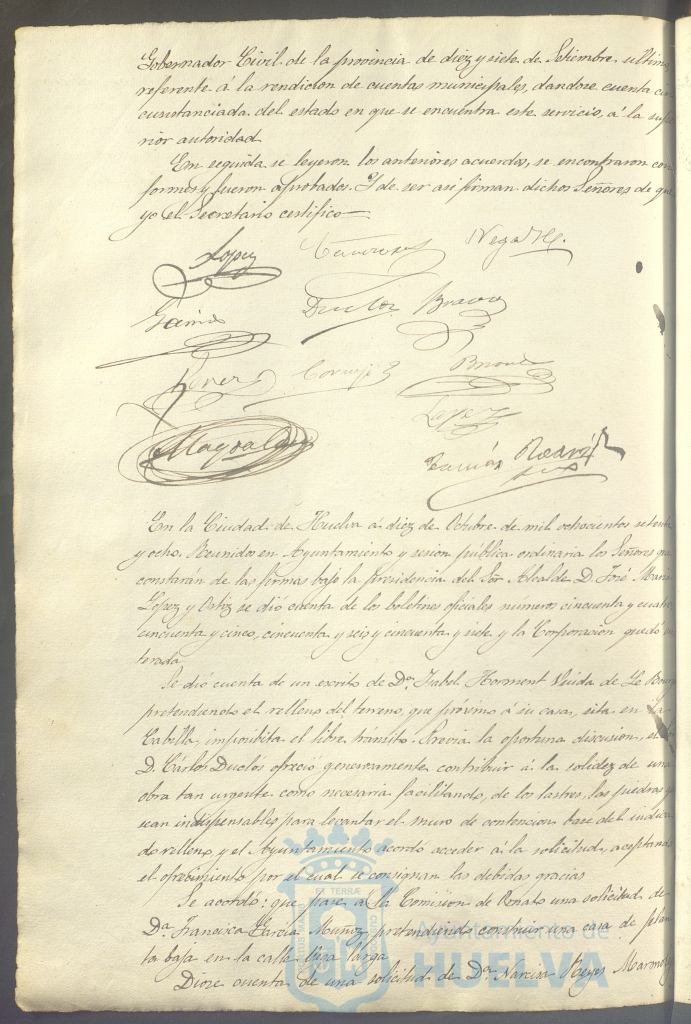 Gobernador Civil de la provincia de diez y siete de Setiembre ultimo
referente á la rendicion de cuentas municipales, dandose cuenta cir
cunstanciada del estado en que se encuentra este servicio, á la supe
rior autoridad
En seguida se leyeron los anteriores acuerdos, se encontraron con
formes y fueron aprobados. Y de ser asi firman dichos Señores de que
yo el Secretario certifico
Lopez
Garcia Duclos Bravo
Cornejo
Lopez
En la Ciudad de Huelva á diez de Octubre de mil ochocientos setenta
y ocho. Reunidos en Ayuntamiento y sesion pública ordinaria los Señores que
constarán de las firmas bajo la presidencia del Sor Alcalde D. José Maria
Lopez y Ortiz se dió cuenta de los boletines oficiales números cincuenta y cuatro
cincuenta y cinco, cincuenta y seis y cincuenta y siete, y la Corporacion quedó en
terada
Se dió cuenta de un escrito de Da. Isabel Horment Viuda de Le Bourg
pretendiendo el relleno del terreno, que próximo á su casa, sita en la
imposibita el libre tránsito. Previa la oportuna discusion, el
D. Cárlos Duclós ofreció generosamente contribuir á la solidez de una
obra tan urgente como necesaria facilitando, de los lastres, las piedras q
sean indispensables para levantar el muro de contencion base del indica
do relleno y el Ayuntamiento acordó acceder á la solicitud, aceptando
el ofrecimiento por el cual se consignan las debidas gracias
Se acordó: que pase á la Comision de Ornato una solicitud de
Da. Francisca Garcia Muñoz pretendiendo construir una casa de plan
ta baja en la calle larga
Diose cuenta de una solicitud de Da. Narcisa Reyes Marmol y
ET TERRAE
Ayuntamiento de
HUELVA